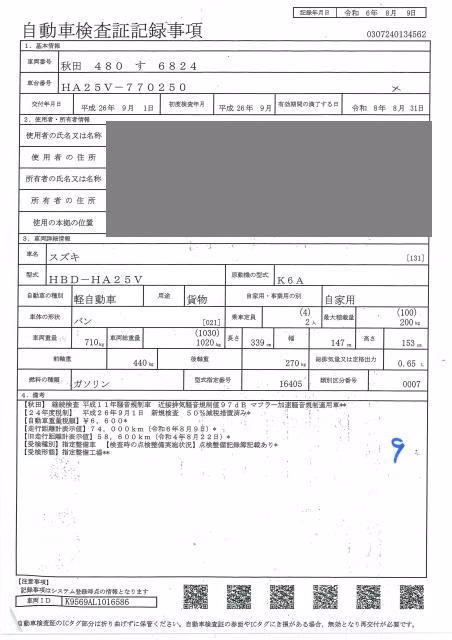 記録年月日 令和 6年 8月 9日
自動車検査証記録事項
0307240134562
1. 基本情報
車両番号 秋田 480 す 6824
車台番号 HA25V-770250
交付年月日 平成 26年 9月 1日 初度検査年月 平成 26年 9月 有効期間の満了する日 令和 8年 8月 31日
2. 使用者・所有者情報
使用者の氏名又は名称
使用者の住所
所有者の氏名又は名称
所有者の住所
使用の本拠の位置
3. 車両詳細情報
車名 スズキ [131]
型式 HBD-HA25V 原動機の型式 K6A
自動車の種別 軽自動車 用途 貨物 自家用・事業用の別 自家用
車体の形状 バン [021] 乗車定員 (4) 2人 最大積載量 (100) 200kg
車両重量 710kg 車両総重量 (1030) 1020kg 長さ 339cm 幅 147cm 高さ 153cm
前軸重 440kg 後軸重 270kg 総排気量又は定格出力 0.65 L
燃料の種類 ガソリン 型式指定番号 16405 類別区分番号 0007
4. 備考
【秋田】 継続検査 平成11年騒音規制車 近接排気騒音規制値97dB マフラー加速騒音規制適用車**
【24年度税制】 平成26年9月1日 新規検査 50%減税措置済み*
【自動車重量税額】 ¥6,600*
【走行距離計表示値】 74,000km (令和6年8月9日)*
【旧走行距離計表示値】 58,600km (令和4年8月22日)*
【受検種別】 指定整備車 【検査時の点検整備実施状況】 点検整備記録簿記載あり*
【受検形態】 指定整備工場**
9
【注意事項】
記録事項はシステム登録時点の情報となります
車両ID K9569AL1016586
自動車検査証のICタグ部分は折り曲げずに保管ください。自動車検査証の券面やICタグにき損がある場合、無効となり再交付が必要です。